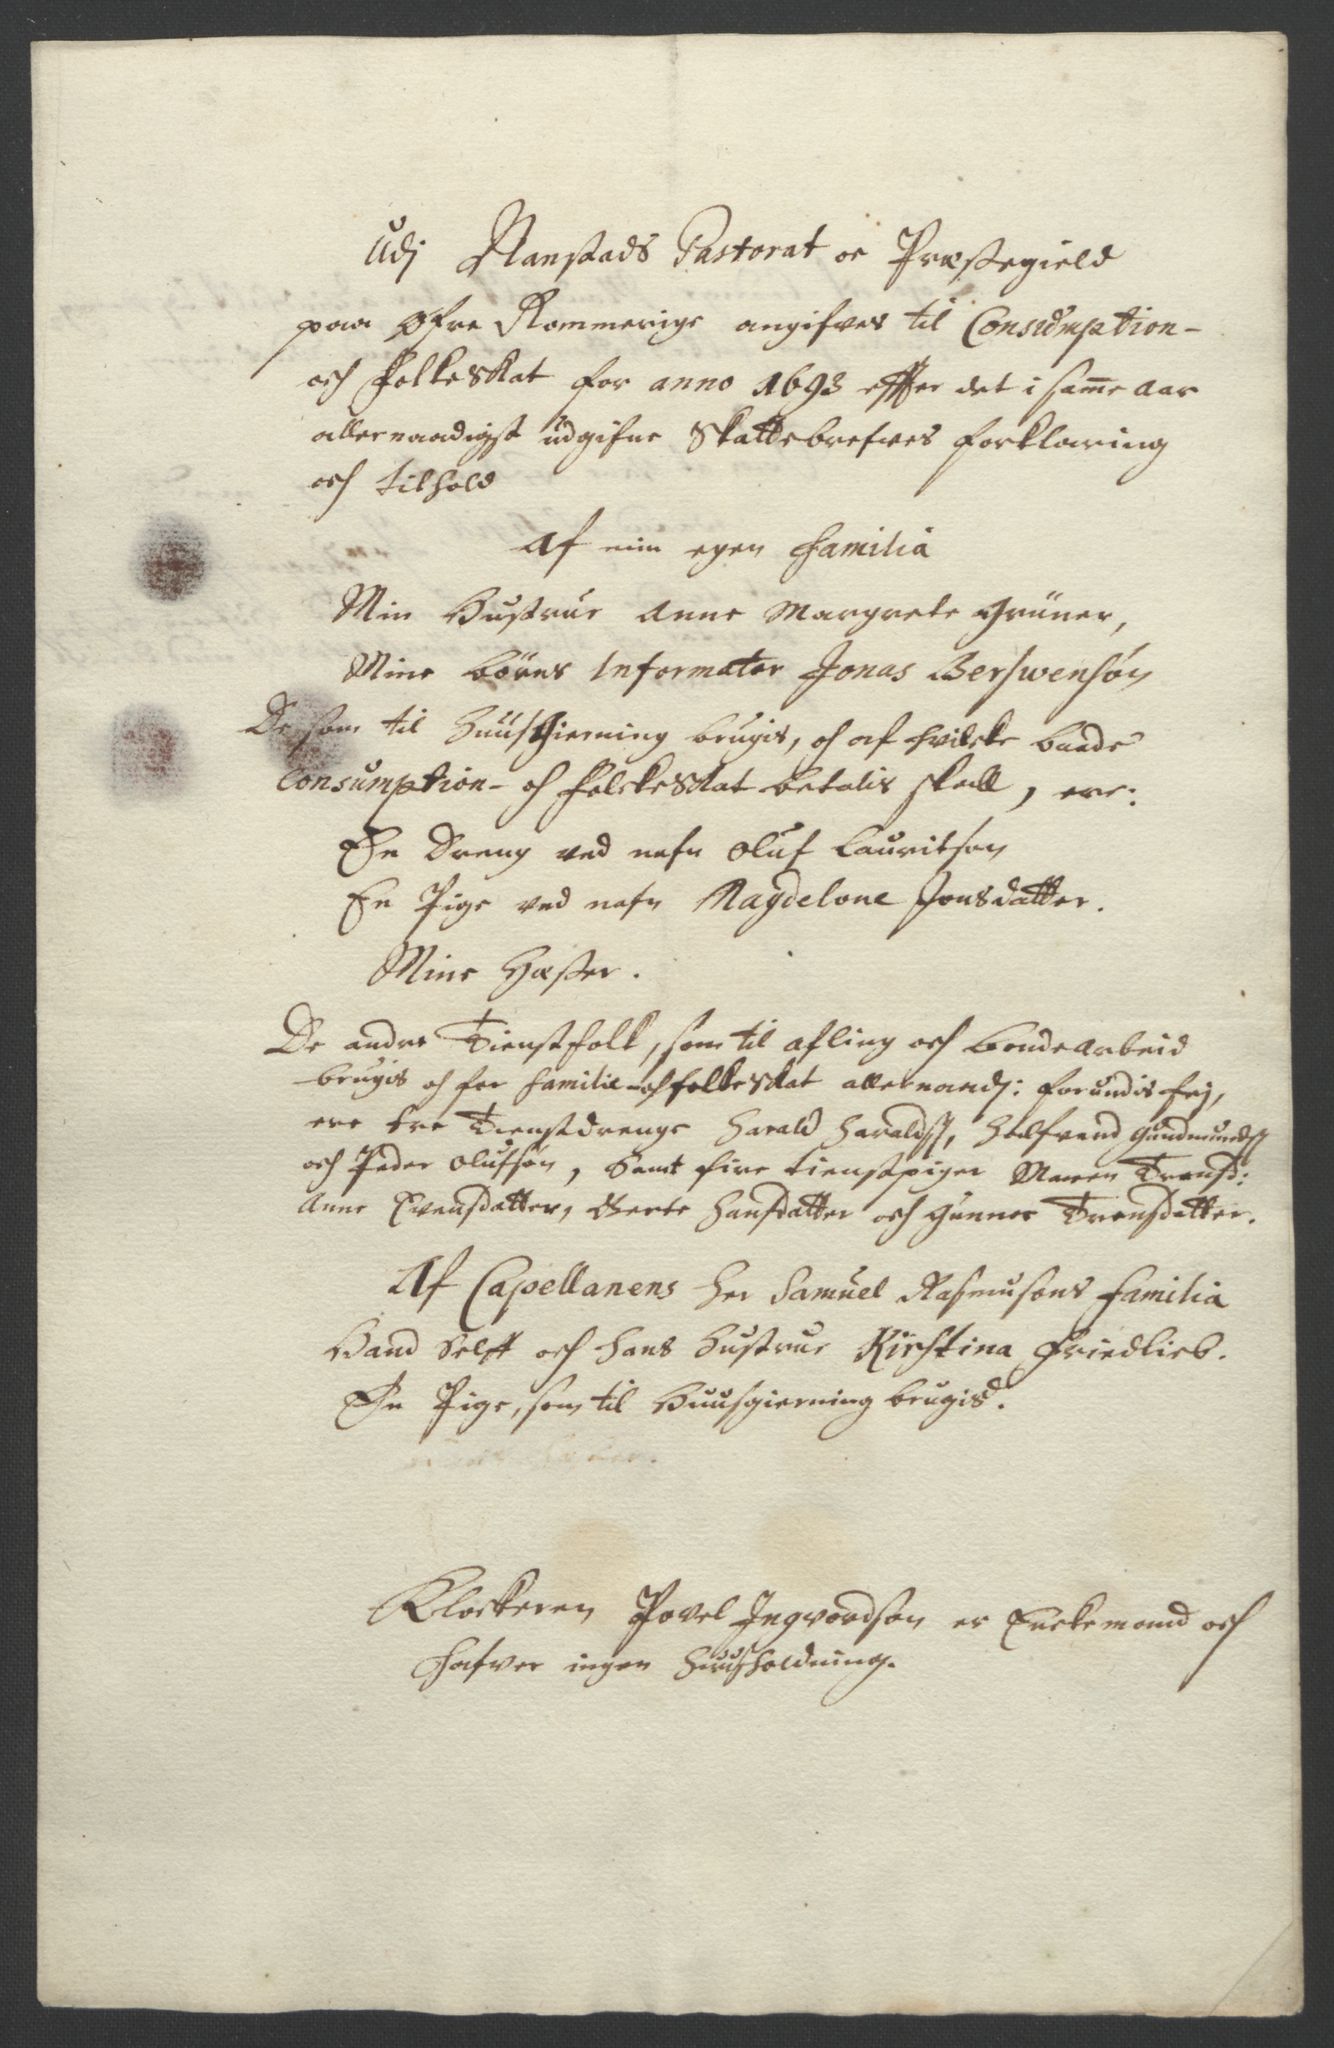 Udj Nanstads Pastorat oc Præstegield
paa Øfre Rommerige angifves til Consumption-
och Folkeskat for anno 1693 effter det i samme aar
allernaadigst udgifne Skattebrefves forklaring
och tilhold
Af min egen Familia
Min Hustrue Anne Margrete Grüner,
Mine börns Informator Jonas Berswensøn
De som til Huusgierning brugis, oc af hvilcke baade
Consumption- oc Folckeskat betalis skall, ere:
En Dreng ved nafn Oluf Lauritson
En Pige ved nafn Magdelone Jonsdatter.
Mine Hæster.
De andre Tienstfolk, som til afling och bondearbeid
brugis oc for familie- och folkeskat allernaadj: forundis frj,
ere tre Tienstdrenge Harald Haralds, Halfvand Gundmunds
och Peder Olufsøn, samt fire tienstpiger Maren Tronsd:
Anne Evensdatter, Berte Hansdatter och Gunner Tronsdatter.
Af Capellanens Her Samuel Rasmusons Familia
Hand Selff och hans Hustrue Kirstina Friedlieb.
En Pige, som til Huusgierning brugis.
Klockeren Povel Ingvordson er Enckemand och
hafver ingen Huusholdning.